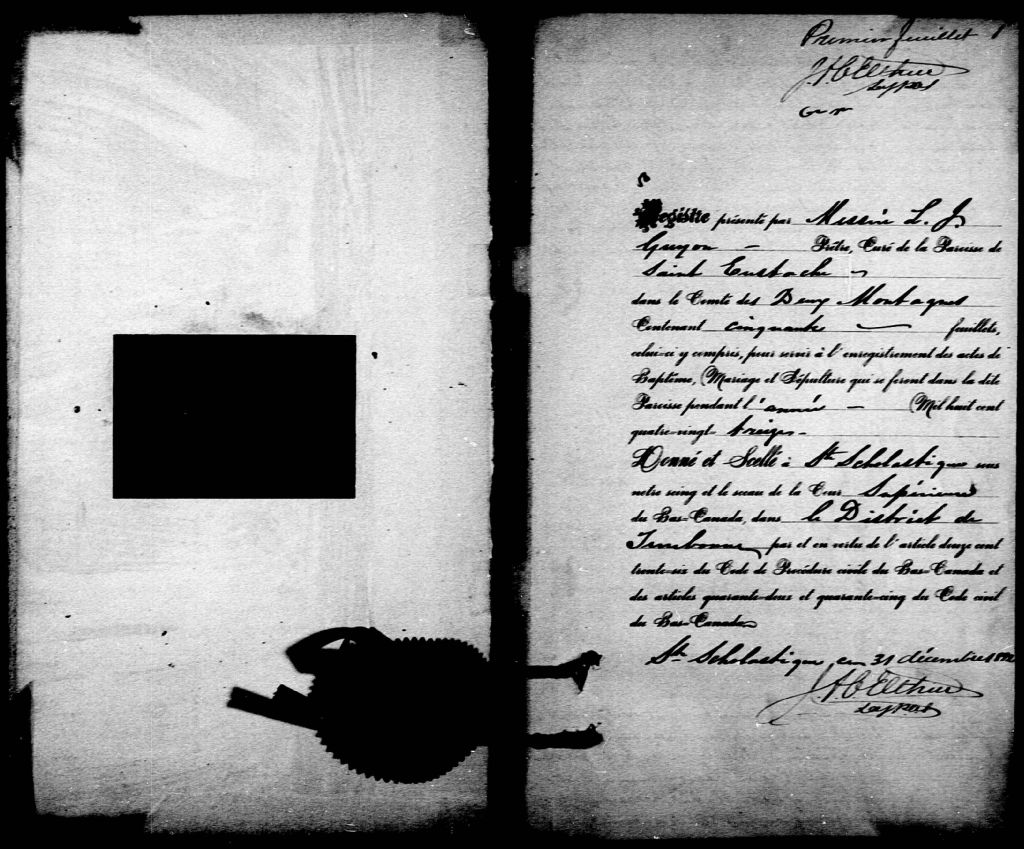 Premier feuillet 1
Registre présenté par Messire L. J.
Guyon — Prêtre, Curé de la Paroisse de
Saint Eustache
dans le Comté des Deux Montagnes
Contenant cinquante — feuillets,
celui-ci y compris, pour servir à l'enregistrement des actes de
Baptême, Mariage et Sépulture qui se feront dans la dite
Paroisse pendant l'année — Mil huit cent
quatre-vingt treize-
Donné et Scellé à Ste Scholastique sous
notre seing et le sceau de la Cour Supérieure
du Bas-Canada, dans le District de
Terrebonne par et en vertu de l'article douze cent
trente-six du Code de Procédure civile du Bas-Canada et
des articles quarante-deux et quarante-cinq du Code civil
du Bas-Canada
Ste Scholastique, ce 31 décembre 1892